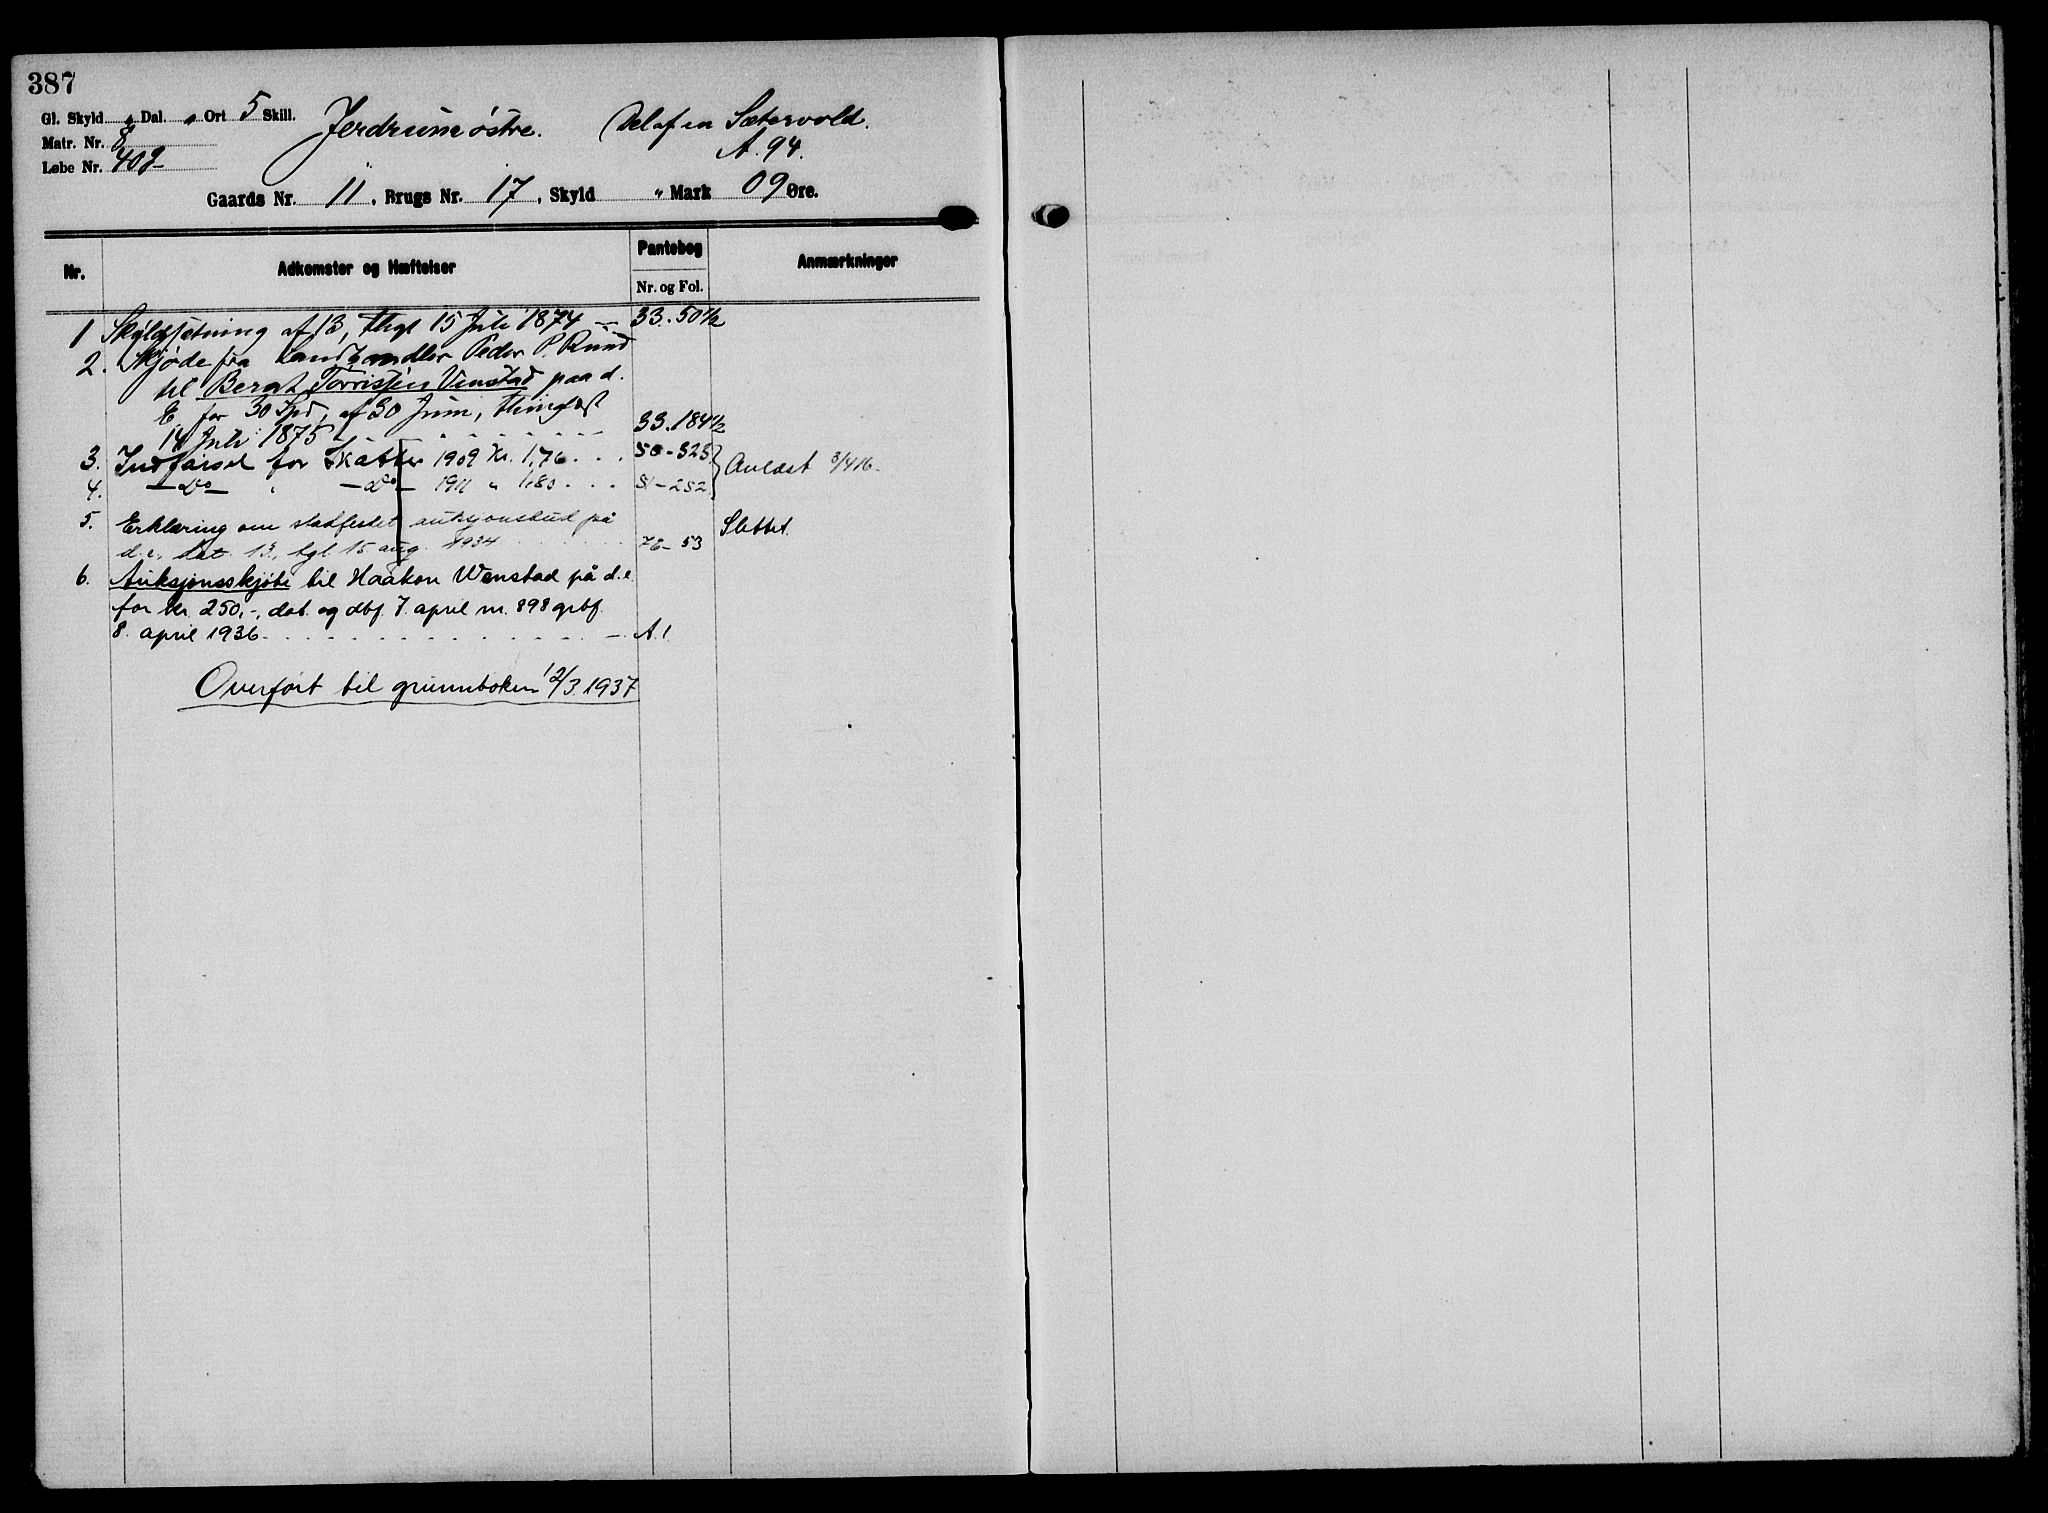 387
Gl. Skyld „ Dal. „ Ort 5 Skill.
Matr. Nr. 8
Løbe Nr. 40g
Jerdrum østre. Del af en Sætervold.
A. 94.
Gaards Nr. 11, Brugs Nr. 17, Skyld „ Mark 09 Øre.
Nr. Adkomster og Hæftelser Pantebog Anmærkninger
Nr. og Fol.
1 Skyldsetning af 13, thgl 15 Juli 1874 — 33. 50 1/2
2. Skjøde fra Landhandler Peder P. Ruud
til Bernt Torristen Vinstad paa d.
E. for 30 Spd, af 30 Juni, thinglæst
14 Juli 1875 33. 184 1/2
3. Indførsel for Skatter 1909 Kr. 1,76 . . . 50 - 325
4. — Do — „ — Do — 1911 „ 1,80 . . . 51 - 252 } Avlæst 3/4 16
5. Erklæring om stadfestet auksjonsbud på Slettet.
d.e., dat. 13., tgl. 15 aug. 1934 76 - 53
6. Auksjonsskjøte til Haakon Wenstad på d.e.
for kr. 250,-, dat. og dbf. 7. april nr. 898 grbf.
8. april 1936 A. 1.
Overført til grunnboken 12/3. 1937